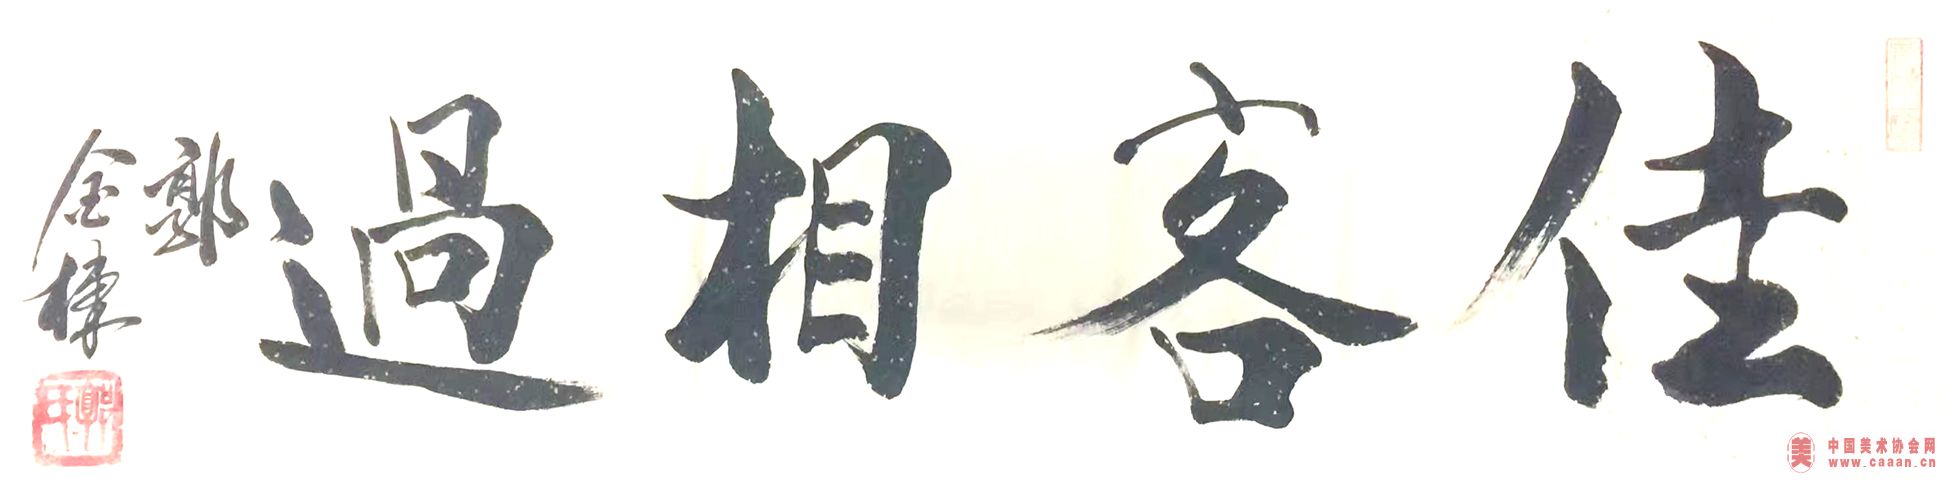 佳客相過
郭
金棟
中国美术协会网
www.caaan.cn